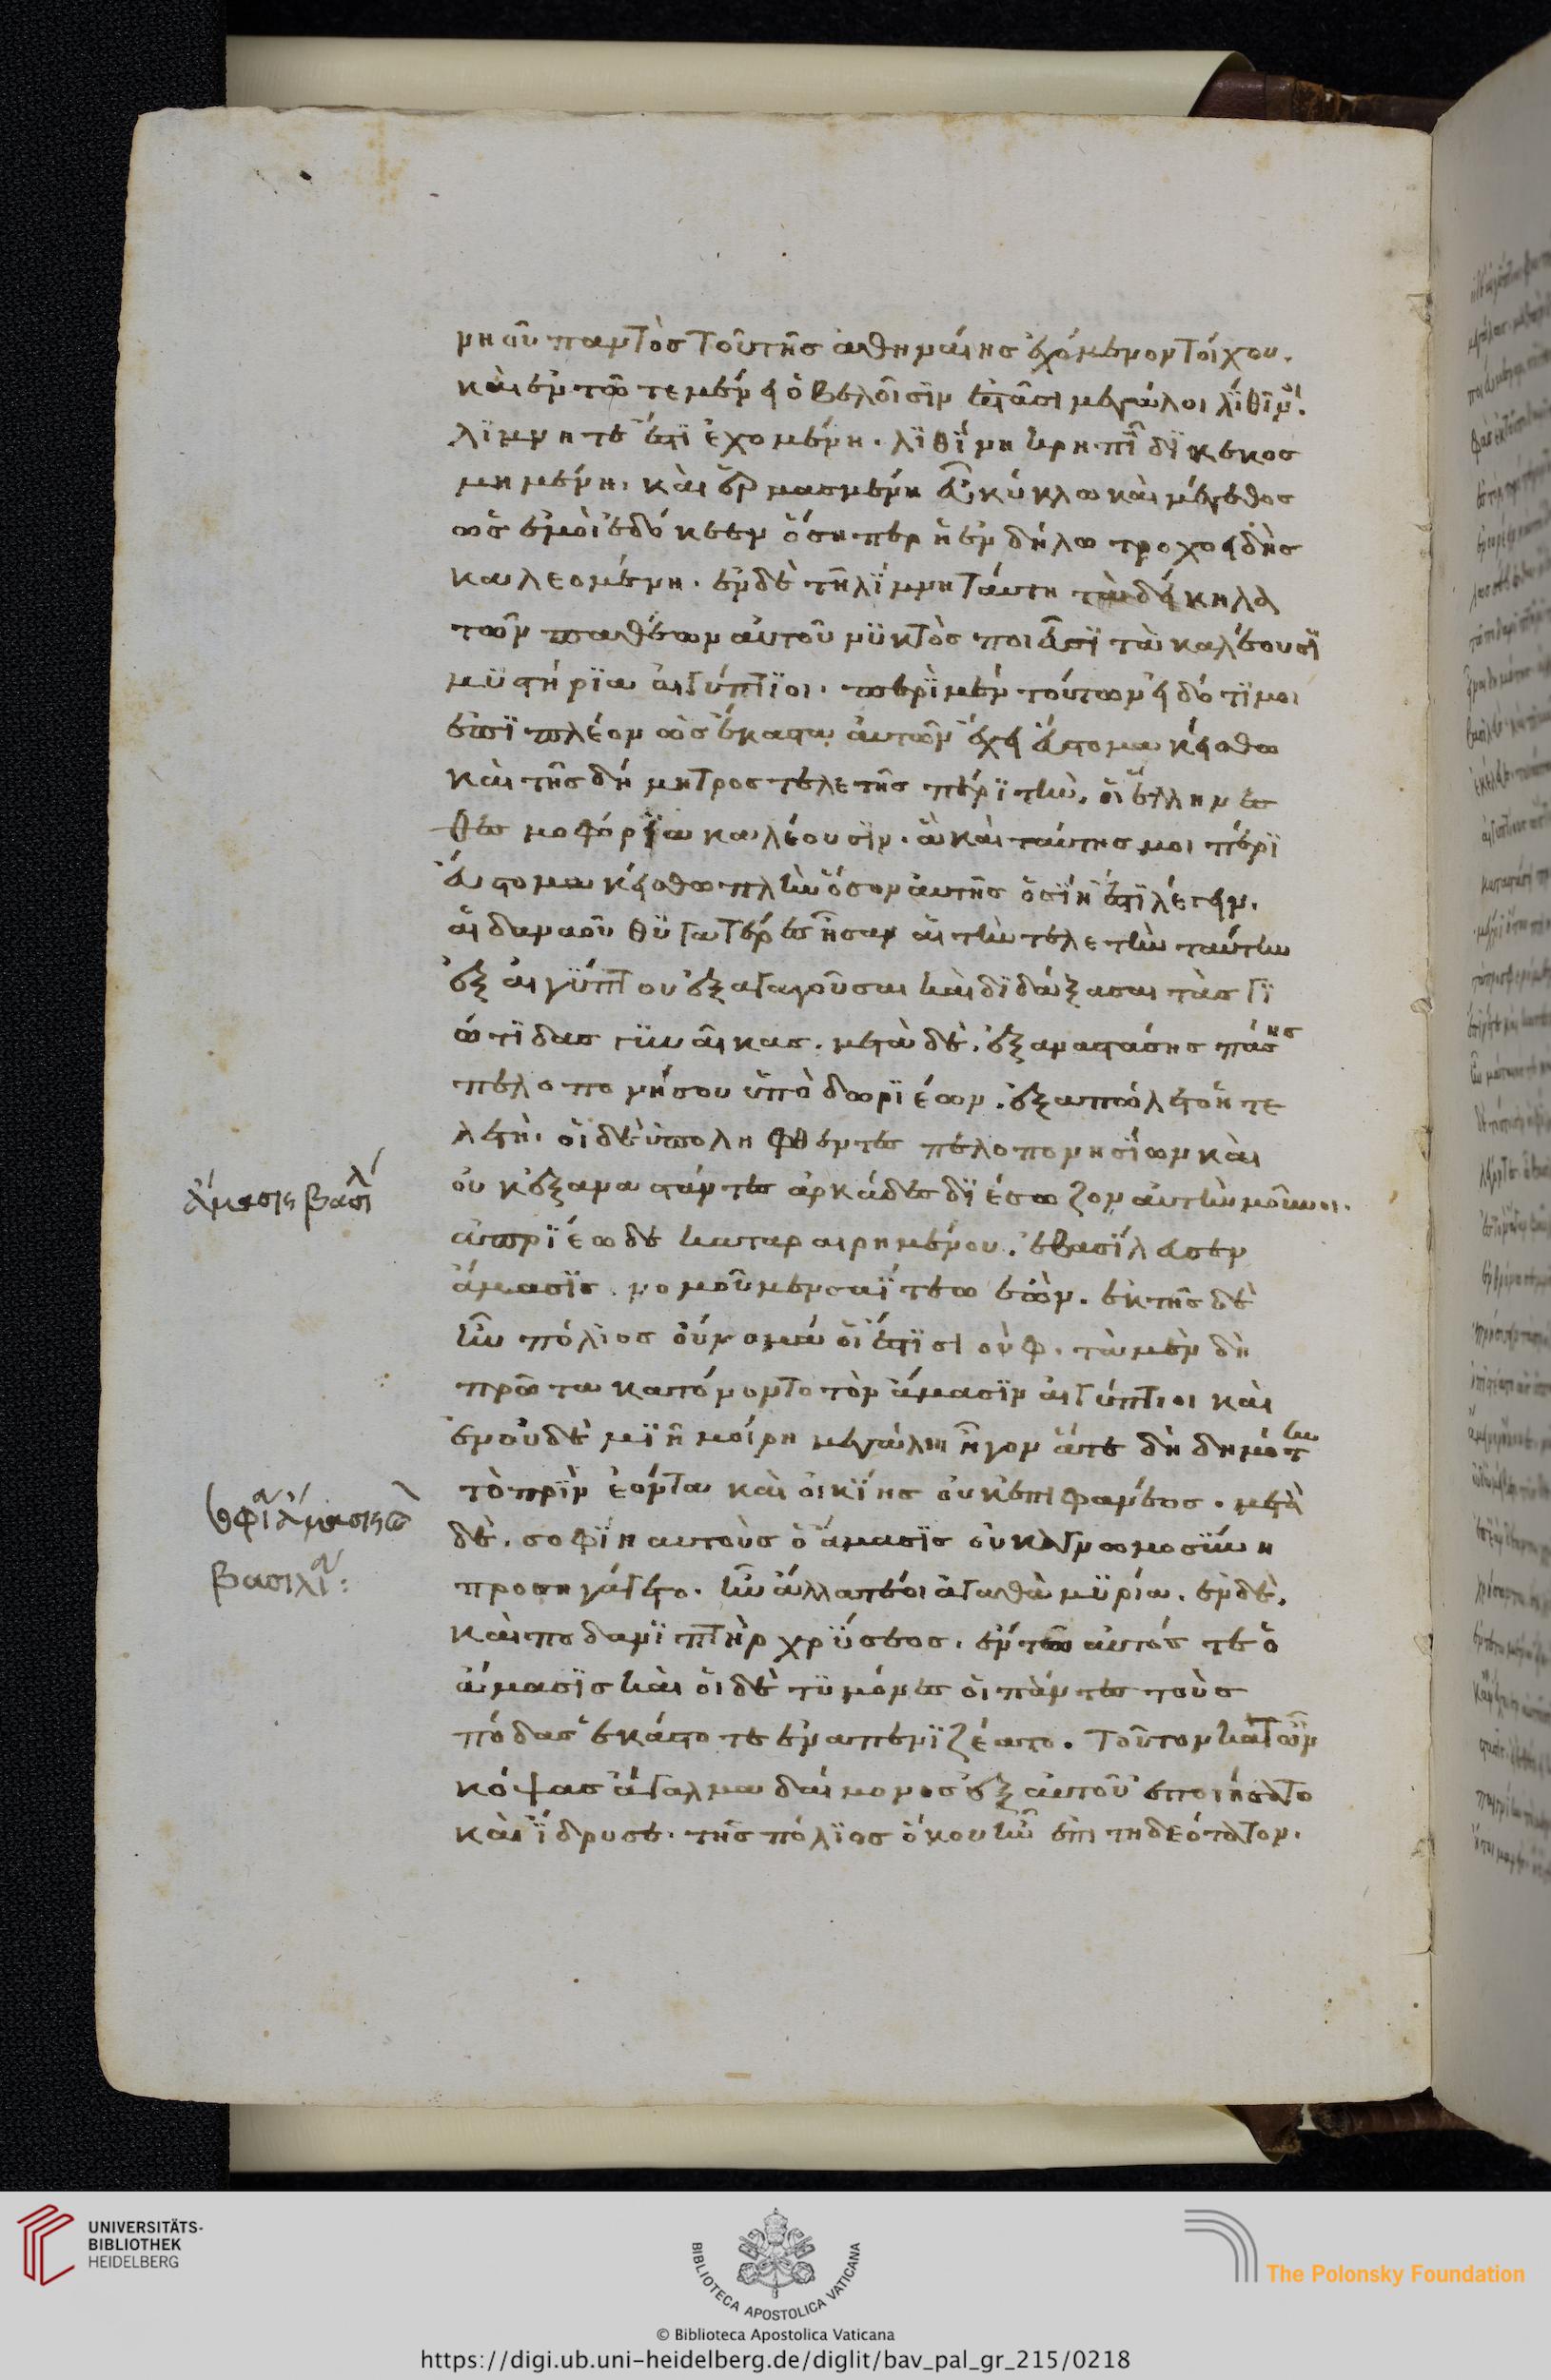 νηοῦ παντὸς τοῦ τῆς ἀθηναίης ἐχόμενον τοίχου.
καὶ ἐν τῶ τεμένει ὀβελοῖσϊν ἑστᾶσι μεγάλοι λΐθϊνοι.
λΐμνη τέ ἐστϊ ἐχομένη. λϊθΐνη κρηπῖδϊ κεκοσ
μημένη. καὶ ἐρμασμένη εὖ κύκλω καὶ μέγεθος
ὡς ἐμοὶ ἐδόκεεν ὅση περ ἡ ἐν δήλω τροχοειδὴς
καλεομένη. ἐν δὲ τῆ λΐμνη ταύτη τὰ δείκηλα
τῶν παθέων αὐτοῦ νϋκτὸς ποιεῦσϊ τὰ καλέουσϊ
μϋστήρϊα αἰγύπτϊοι. περὶ μέν τούτων εἰδότϊ μοι
ἐπϊ πλέον ὡς ἕκαστα αὐτῶν ἔχει εὔστομα κείσθω
καὶ τῆς δήμητρος τελετῆς πέρϊ τὴν. οἱ ἕλληνες
θεσμοφόρϊα καλέουσϊν. ἀ καὶ ταύτης μοι πέρϊ
εὔστομα κείσθω πλὴν ὅσον αὐτῆς ὁσΐη ἐστϊ λέγειν.
αἱ δαναοῦ θϋγατέρες ἦσαν αἱ τὴν τελετὴν ταύτην
ἐξ αἰγΰπτου ἐξαγαγοῦσαι καὶ δϊδάξασαι τὰς γϊ
ώτϊδας γϋναῖκας. μετὰ δὲ. ἐξαναστάσης πάσης
πελοπονήσου ὑπὸ δωρϊέων. ἐξαπώλετο ἡ τε
λετὴ. οἱ δὲ ὑποληφθέντες πελοπονησΐων καὶ
οὐκ ἐξαναστάντες ἀρκάδες δϊέσωζον αὐτὴν μοῦνοι.
ἄμασις βασιλεύ
ἀπρϊέω δὲ καταραιρημένου. ἐβασΐλευσεν
ἄμασϊς. νομοῦ μεν σαΐτεω ἐὼν. ἐκ τῆς δὲ
ἦν πόλϊος οὔνομά οἵ ἐστϊ σιοὺφ. τὰ μὲν δὴ
πρῶτα κατόνοντο τὸν ἄμασϊν αἰγύπτιοι καὶ
ἐν οὐδὲ μϊῆ μοίρη μεγάλη ἦγον ἅτε δὴ δημότην
τὸ πρϊν ἐόντα καὶ οἰκΐης οὐκ ἐπιφανέος. μετὰ
δὲ. σοφΐη αυτοὺς ὁ ἄμασϊς οὐκ ἀγνωμοσΰνη
προσηγάγετο. ἦν ἄλλα τέ οἱ ἀγαθὰ μϋρία. ἐν δὲ.
καὶ ποδανϊπτὴρ χρΰσεος. ἐν τῶ αὐτός τε ὁ
ἄμασϊς καὶ οἱ δὲ τϋμόνες οἱ πάντες τοὺς
πόδας ἑκάστοτε ἐναπενϊζέατο. τοῦτον κατῶν
κόψας ἄγαλμα δαίμονος ἐξ αὐτοῦ ἐποιήσατο
καὶ ΐδρυσε. τῆς πόλϊος ὅκου ἦν ἐπιτηδεότατον.
UNIVERSITÄTS-
BIBLIOTHEK
HEIDELBERG
BIBLIOTECA APOSTOLICA VATICANA
The Polonsky Foundation
© Biblioteca Apostolica Vaticana
https://digi.ub.uni-heidelberg.de/diglit/bav_pal_gr_215/0218